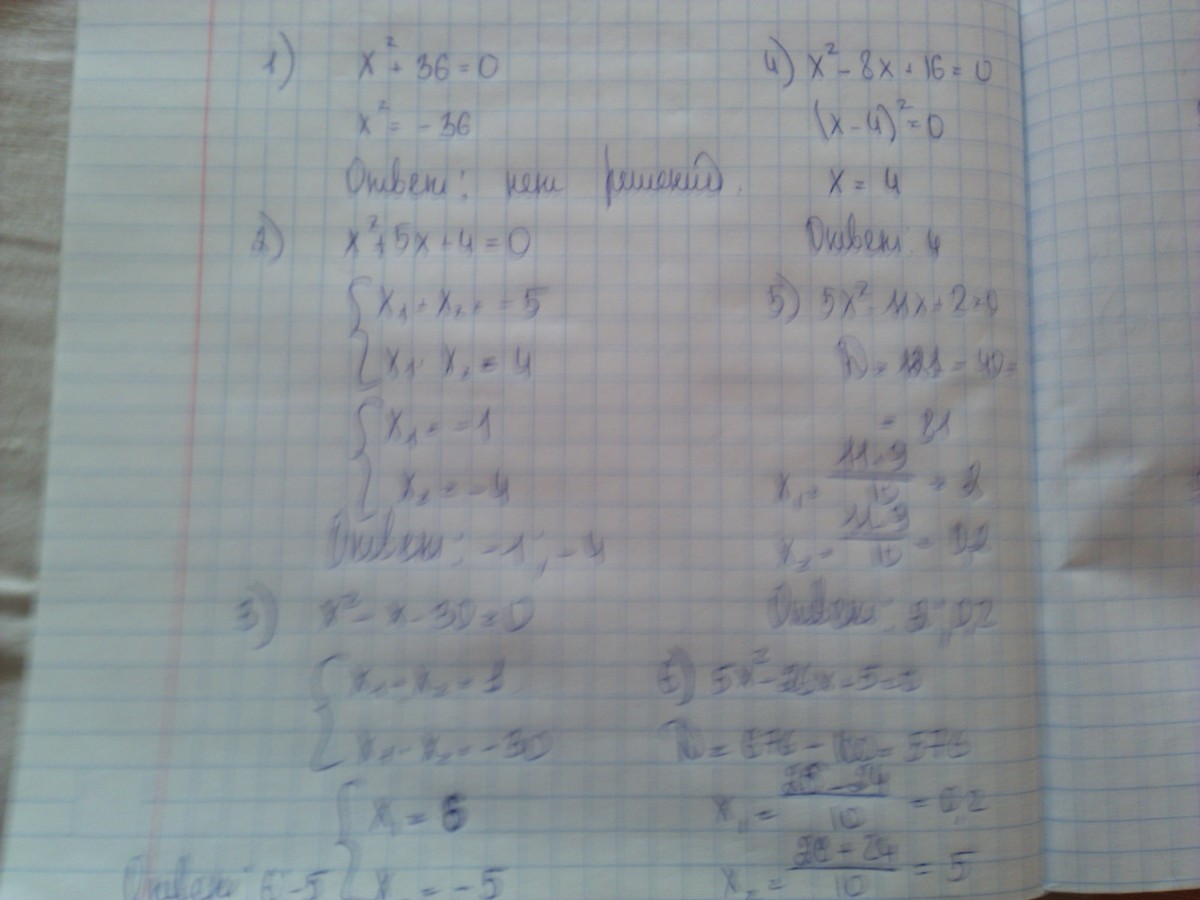 1) x² + 36 = 0
x² = -36
Ответ: нет решений.
2) x² + 5x + 4 = 0
{ x₁ + x₂ = -5
x₁ · x₂ = 4
{ x₁ = -1
x₂ = -4
Ответ: -1; -4
3) x² - x - 30 = 0
{ x₁ + x₂ = 1
x₁ · x₂ = -30
{ x₁ = 6
x₂ = -5
Ответ: 6; -5
4) x² - 8x + 16 = 0
(x - 4)² = 0
x = 4
Ответ: 4
5) 5x² - 11x + 2 = 0
D = 121 - 40 =
= 81
x₁ = (11+9)/10 = 2
x₂ = (11-9)/10 = 0,2
Ответ: 2; 0,2
6) 5x² - 26x + 5 = 0
D = 676 - 100 = 576
x₁ = (26 - 24)/10 = 0,2
x₂ = (26 + 24)/10 = 5